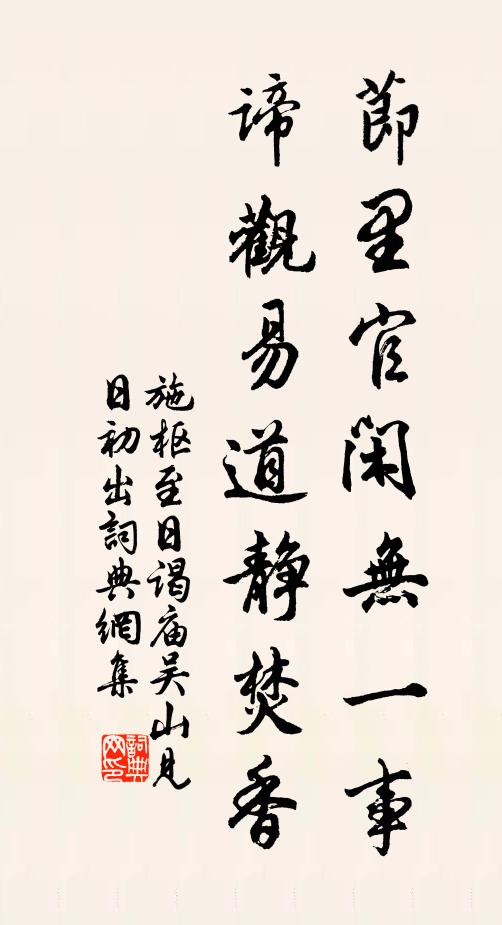 節里官閑無一事
諦觀易道靜焚香
施枢至日謁庙吴山見
日初出詞典網集
詞典
网印